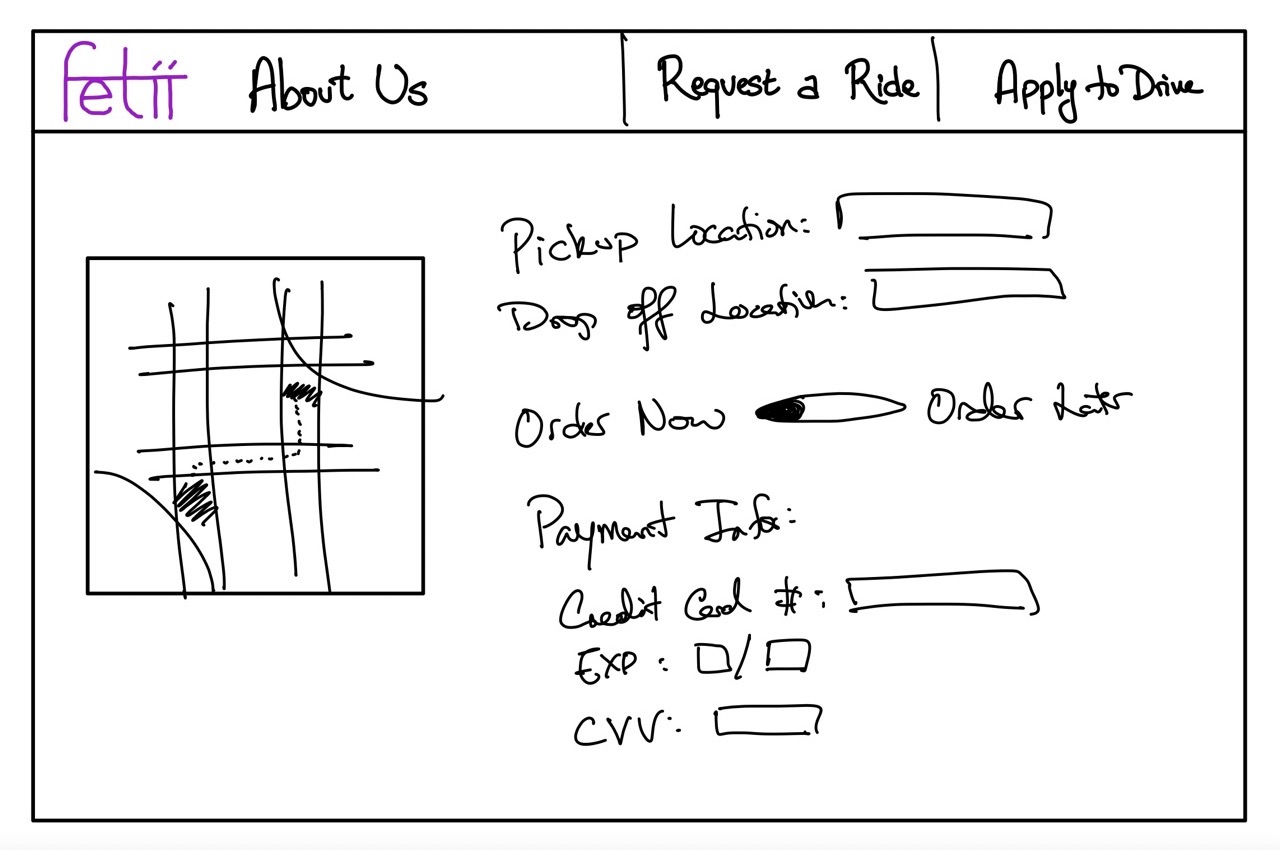 fetii About Us Request a Ride Apply to Drive
Pickup Location:
Drop off Location:
Order Now Order Later
Payment Info:
Credit Card #:
EXP: /
CVV: